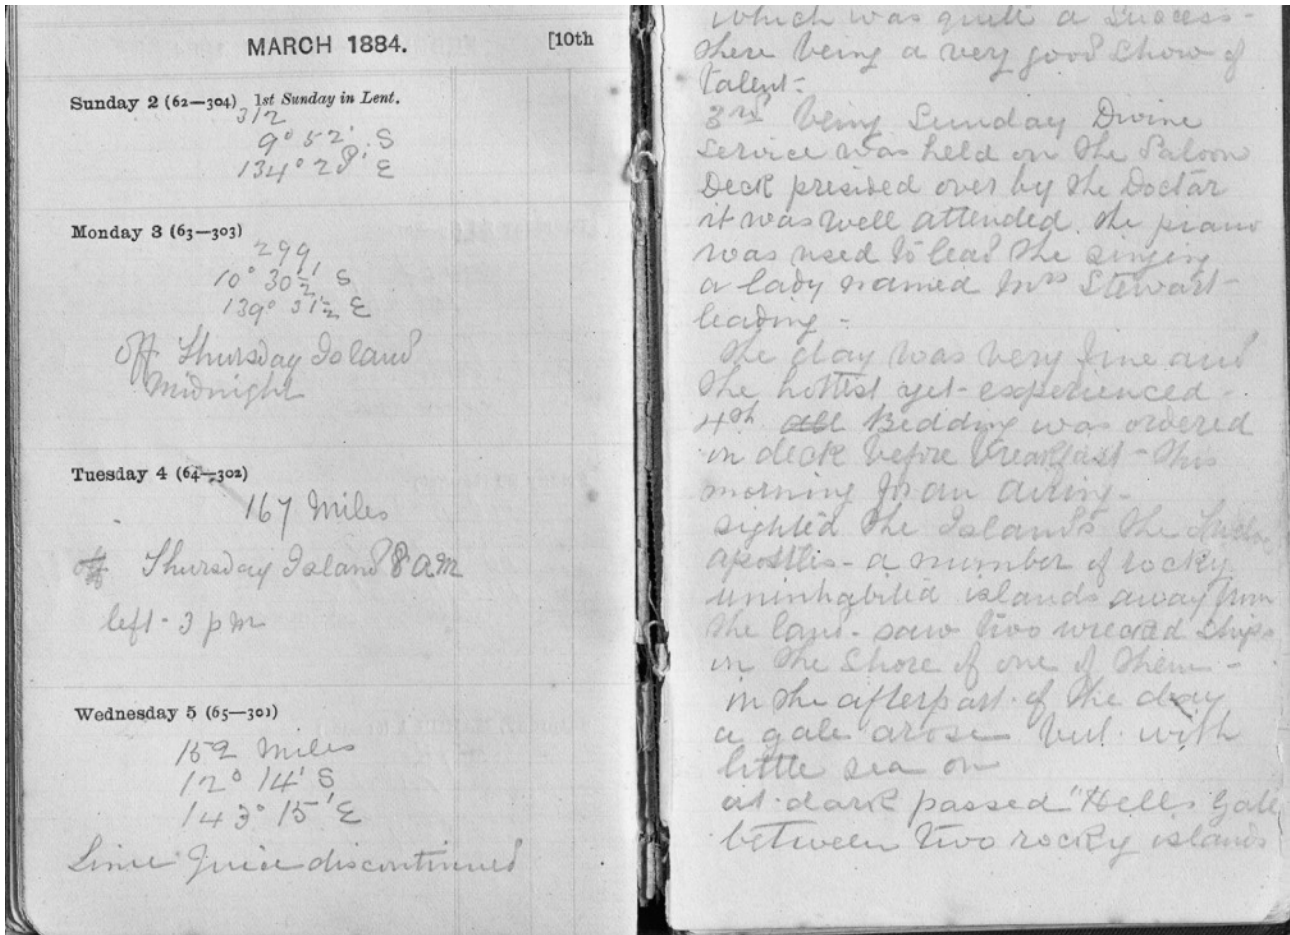 MARCH 1884. [10th
Sunday 2 (62—304) 1st Sunday in Lent.
312
9° 52' S
134° 28' E
Monday 3 (63—303)
299
10° 30½' S
139° 31½' E
off Thursday Island
Midnight
Tuesday 4 (64—302)
167 Miles
off Thursday Island 8 am
left - 3 pm
Wednesday 5 (65—301)
159 Miles
12° 14' S
143° 15' E
Lime Juice discontinued
which was quite a Success -
there being a very good show of
talent -
3rd being Sunday Divine
Service was held on the Saloon
Deck presided over by the Doctar
it was well attended the piano
was used to lead the singing
a lady named Mrs Stewart -
leading -
the day was very fine and
the hottest yet - experienced -
4th all Bedding was ordered
on deck before breakfast - this
morning for an airing -
sighted the Islands the
apostles - a number of rocky
uninhabited islands away from
the land - saw two wrecked ships
on the shore of one of them -
in the afterpart of the day
a gale arose but with
little sea on
at dark passed "Hells Gate
between two rocky islands